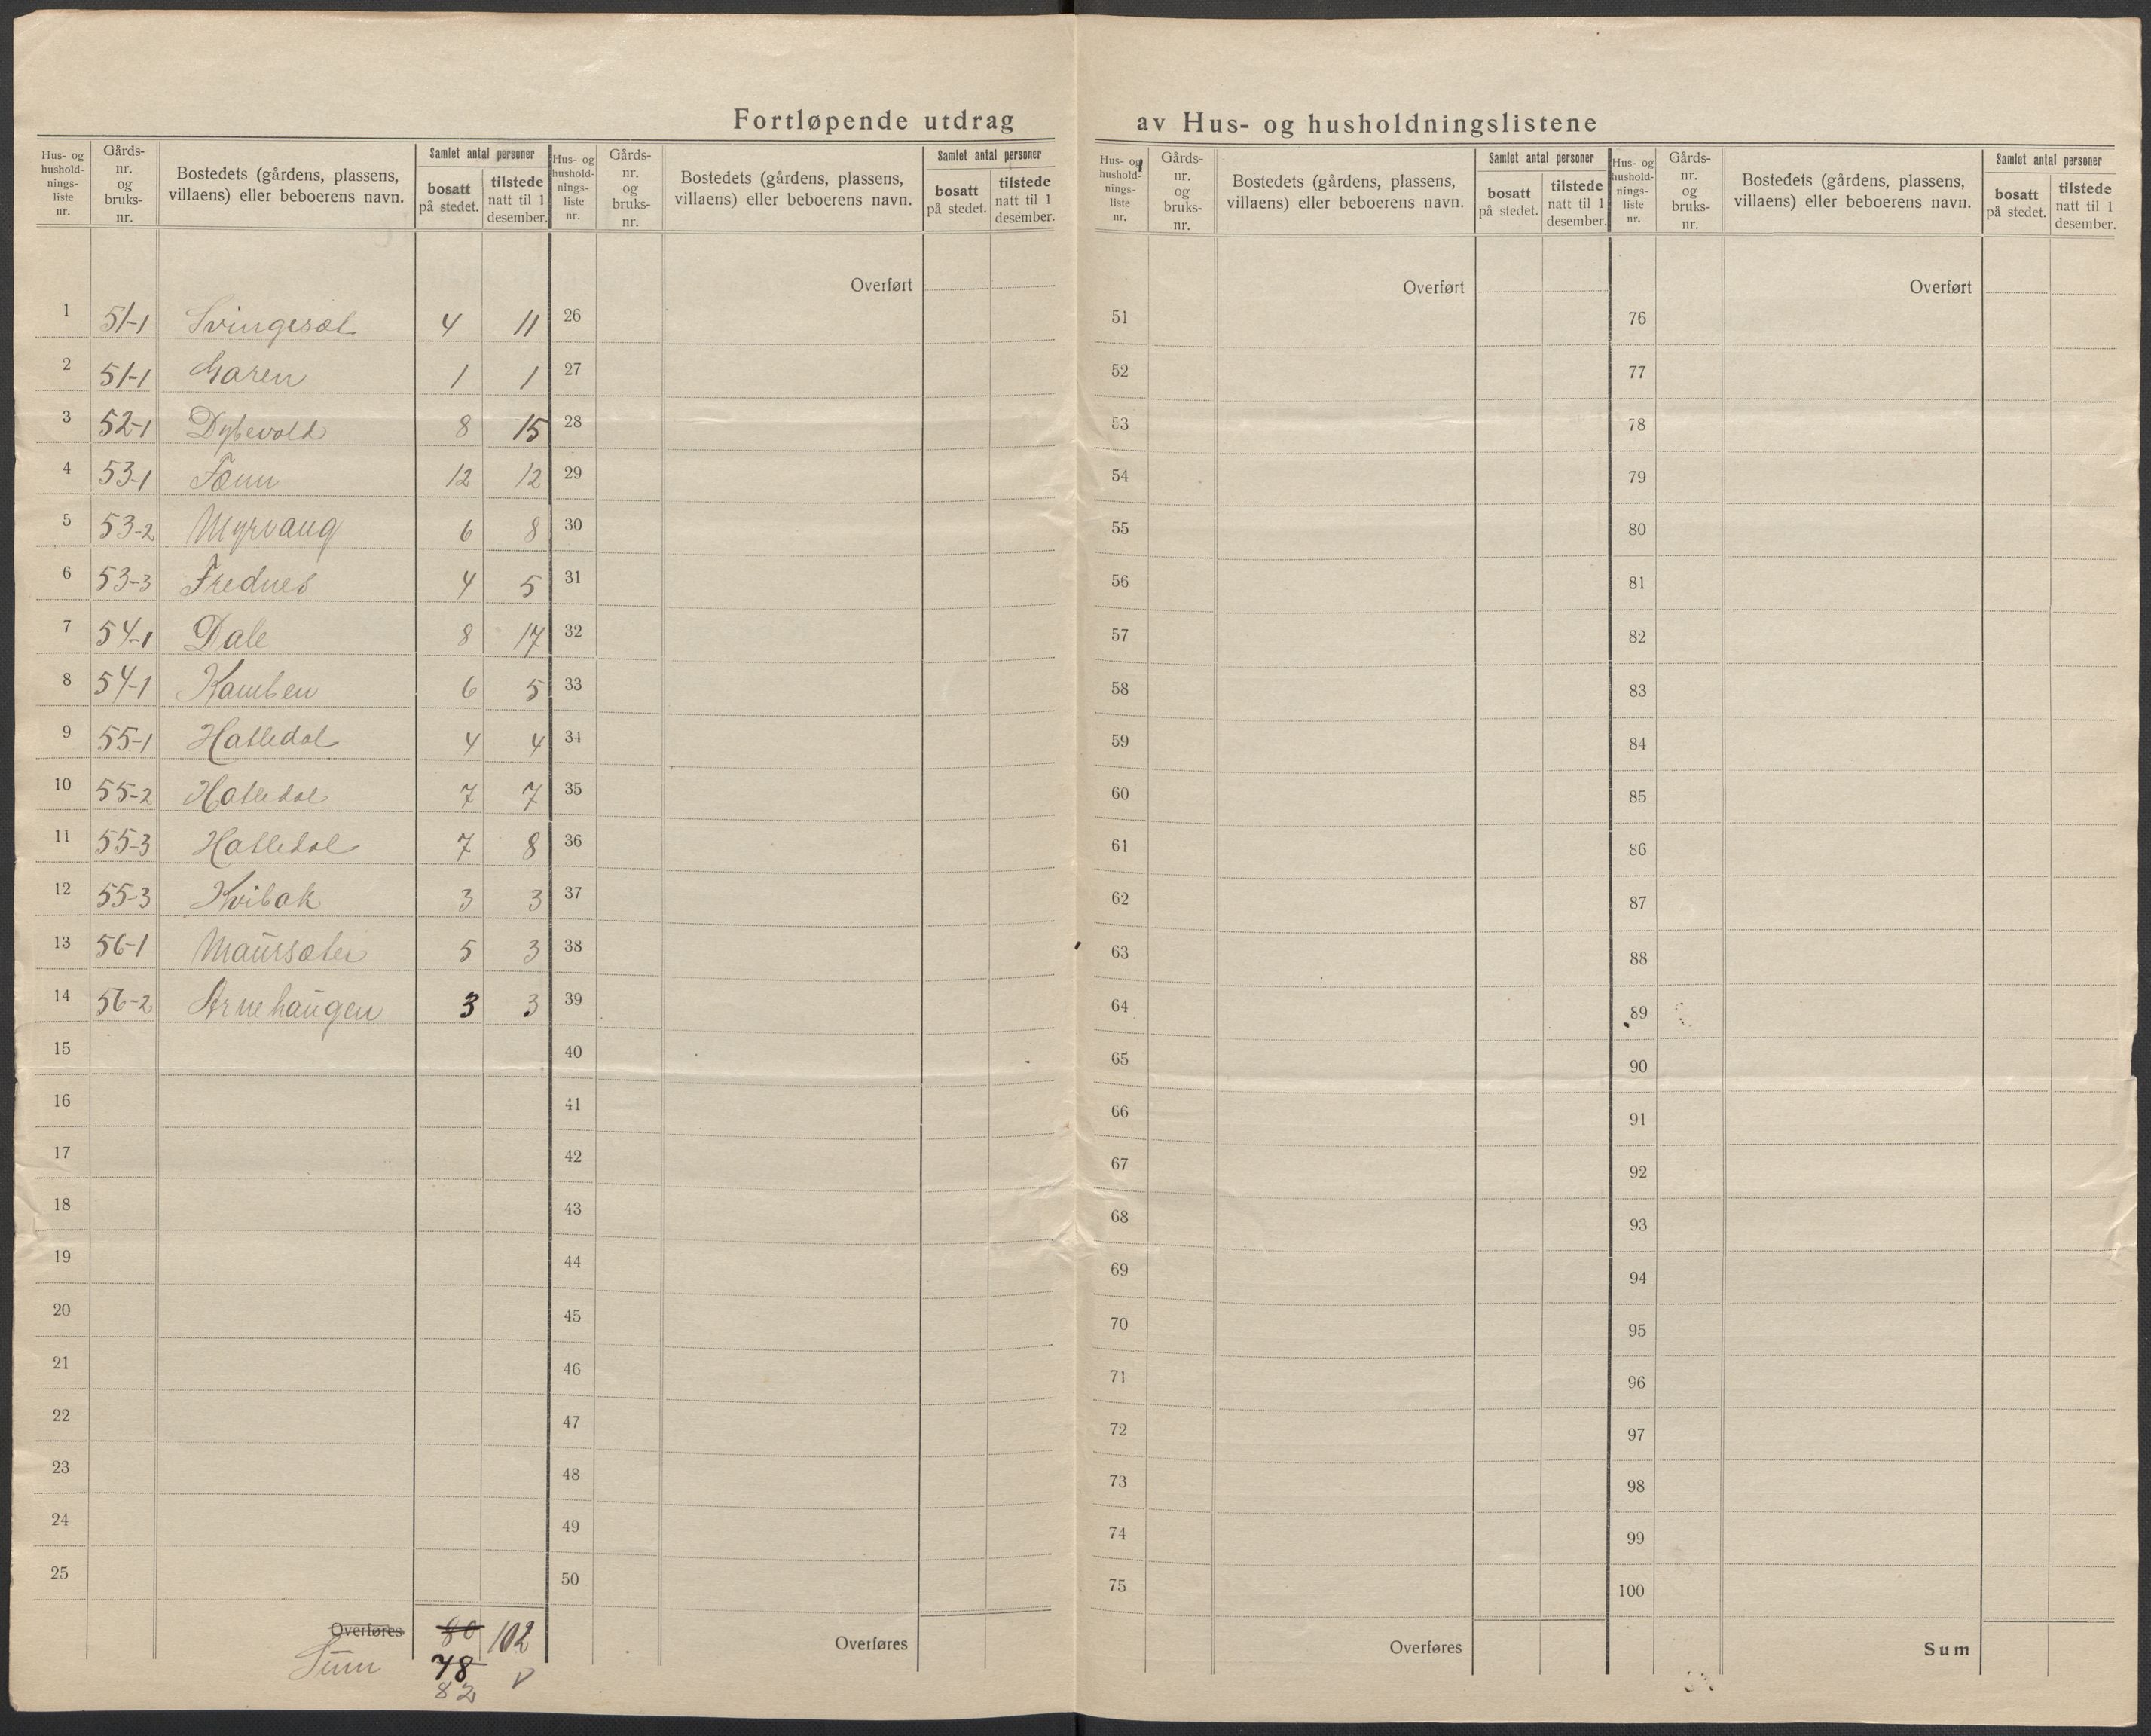 Fortløpende utdrag av Hus- og husholdningslistene
Hus- og hushold-nings-liste nr. | Gårds-nr. og bruks-nr. | Bostedets (gårdens, plassens, villaens) eller beboerens navn. | Samlet antal personer | bosatt på stedet. | tilstede natt til 1 desember.
1 51-1 Svingesæt 4 11
2 51-1 Garen 1 1
3 52-1 Dybevold 8 15
4 53-1 Fønn 12 12
5 53-2 Myrvang 6 8
6 53-3 Frednes 4 5
7 54-1 Dale 8 17
8 54-1 Kamben 6 5
9 55-1 Hatledal 4 4
10 55-2 Hatledal 7 7
11 55-3 Hatledal 7 8
12 55-3 Kvibak 3 3
13 56-1 Maursæter 5 3
14 56-2 Arnehaugen 3 3
15
16
17
18
19
20
21
22
23
24
25
Overføres 80 102
Sum 78
82
Hus- og hushold-nings-liste nr. | Gårds-nr. og bruks-nr. | Bostedets (gårdens, plassens, villaens) eller beboerens navn. | Samlet antal personer | bosatt på stedet. | tilstede natt til 1 desember.
Overført
26
27
28
29
30
31
32
33
34
35
36
37
38
39
40
41
42
43
44
45
46
47
48
49
50
Overføres
Hus- og hushold-nings-liste nr. | Gårds-nr. og bruks-nr. | Bostedets (gårdens, plassens, villaens) eller beboerens navn. | Samlet antal personer | bosatt på stedet. | tilstede natt til 1 desember.
Overført
51
52
53
54
55
56
57
58
59
60
61
62
63
64
65
66
67
68
69
70
71
72
73
74
75
Overføres
Hus- og hushold-nings-liste nr. | Gårds-nr. og bruks-nr. | Bostedets (gårdens, plassens, villaens) eller beboerens navn. | Samlet antal personer | bosatt på stedet. | tilstede natt til 1 desember.
Overført
76
77
78
79
80
81
82
83
84
85
86
87
88
89
90
91
92
93
94
95
96
97
98
99
100
Sum